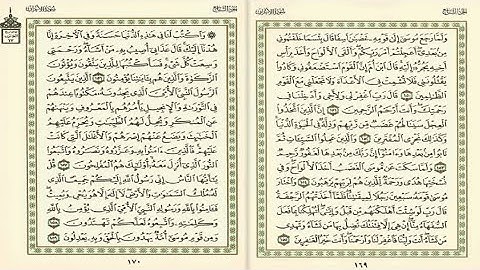 الجزء التاسع
سورة الأعراف
وَلَمَّا رَجَعَ مُوسَىٰٓ إِلَىٰ قَوْمِهِۦ غَضْبَٰنَ أَسِفٗا قَالَ بِئْسَمَا خَلَفْتُمُونِي
مِنۢ بَعْدِيٓۖ أَعَجِلْتُمْ أَمْرَ رَبِّكُمْۖ وَأَلْقَى ٱلْأَلْوَاحَ وَأَخَذَ بِرَأْسِ
أَخِيهِ يَجُرُّهُۥٓ إِلَيْهِۚ قَالَ ٱبْنَ أُمَّ إِنَّ ٱلْقَوْمَ ٱسْتَضْعَفُونِي وَكَادُوا۟
يَقْتُلُونَنِي فَلَا تُشْمِتْ بِيَ ٱلْأَعْدَآءَ وَلَا تَجْعَلْنِي مَعَ ٱلْقَوْمِ
ٱلظَّٰلِمِينَ ١٥٠ قَالَ رَبِّ ٱغْفِرْ لِي وَلِأَخِي وَأَدْخِلْنَا فِي
رَحْمَتِكَۖ وَأَنتَ أَرْحَمُ ٱلرَّٰحِمِينَ ١٥١ إِنَّ ٱلَّذِينَ ٱتَّخَذُوا۟
ٱلْعِجْلَ سَيَنَالُهُمْ غَضَبٌ مِّن رَّبِّهِمْ وَذِلَّةٌ فِي ٱلْحَيَوٰةِ ٱلدُّنْيَاۚ
وَكَذَٰلِكَ نَجْزِي ٱلْمُفْتَرِينَ ١٥٢ وَٱلَّذِينَ عَمِلُوا۟ ٱلسَّيِّـَٔاتِ ثُمَّ
تَابُوا۟ مِنۢ بَعْدِهَا وَءَامَنُوٓا۟ إِنَّ رَبَّكَ مِنۢ بَعْدِهَا لَغَفُورٌ رَّحِيمٌ
١٥٣ وَلَمَّا سَكَتَ عَن مُّوسَى ٱلْغَضَبُ أَخَذَ ٱلْأَلْوَاحَۖ وَفِي
نُسْخَتِهَا هُدًى وَرَحْمَةٌ لِّلَّذِينَ هُمْ لِرَبِّهِمْ يَرْهَبُونَ ١٥٤ وَٱخْتَارَ
مُوسَىٰ قَوْمَهُۥ سَبْعِينَ رَجُلًا لِّمِيقَٰتِنَاۖ فَلَمَّآ أَخَذَتْهُمُ ٱلرَّجْفَةُ
قَالَ رَبِّ لَوْ شِئْتَ أَهْلَكْتَهُم مِّن قَبْلُ وَإِيَّٰيَۖ أَتُهْلِكُنَا بِمَا فَعَلَ
ٱلسُّفَهَآءُ مِنَّآۖ إِنْ هِيَ إِلَّا فِتْنَتُكَ تُضِلُّ بِهَا مَن تَشَآءُ وَتَهْدِي
مَن تَشَآءُۖ أَنتَ وَلِيُّنَا فَٱغْفِرْ لَنَا وَٱرْحَمْنَاۖ وَأَنتَ خَيْرُ ٱلْغَٰفِرِينَ ١٥٥
١٦٩
الجزء التاسع
سورة الأعراف
۞ وَٱكْتُبْ لَنَا فِي هَٰذِهِ ٱلدُّنْيَا حَسَنَةً وَفِي ٱلْءَاخِرَةِ إِنَّا
هُدْنَآ إِلَيْكَۚ قَالَ عَذَابِيٓ أُصِيبُ بِهِۦ مَنْ أَشَآءُۖ وَرَحْمَتِي
وَسِعَتْ كُلَّ شَيْءٍۚ فَسَأَكْتُبُهَا لِلَّذِينَ يَتَّقُونَ وَيُؤْتُونَ
ٱلزَّكَوٰةَ وَٱلَّذِينَ هُم بِـَٔايَٰتِنَا يُؤْمِنُونَ ١٥٦ ٱلَّذِينَ يَتَّبِعُونَ
ٱلرَّسُولَ ٱلنَّبِيَّ ٱلْأُمِّيَّ ٱلَّذِي يَجِدُونَهُۥ مَكْتُوبًا عِندَهُمْ
فِي ٱلتَّوْرَىٰةِ وَٱلْإِنجِيلِ يَأْمُرُهُم بِٱلْمَعْرُوفِ وَيَنْهَىٰهُمْ
عَنِ ٱلْمُنكَرِ وَيُحِلُّ لَهُمُ ٱلطَّيِّبَٰتِ وَيُحَرِّمُ عَلَيْهِمُ
ٱلْخَبَٰٓئِثَ وَيَضَعُ عَنْهُمْ إِصْرَهُمْ وَٱلْأَغْلَٰلَ ٱلَّتِي كَانَتْ
عَلَيْهِمْۚ فَٱلَّذِينَ ءَامَنُوا۟ بِهِۦ وَعَزَّرُوهُ وَنَصَرُوهُ وَٱتَّبَعُوا۟
ٱلنُّورَ ٱلَّذِيٓ أُنزِلَ مَعَهُۥٓۙ أُو۟لَٰٓئِكَ هُمُ ٱلْمُفْلِحُونَ ١٥٧
قُلْ يَٰٓأَيُّهَا ٱلنَّاسُ إِنِّي رَسُولُ ٱللَّهِ إِلَيْكُمْ جَمِيعًا ٱلَّذِي
لَهُۥ مُلْكُ ٱلسَّمَٰوَٰتِ وَٱلْأَرْضِۖ لَآ إِلَٰهَ إِلَّا هُوَ يُحْيِۦ وَيُمِيتُۖ
فَـَٔامِنُوا۟ بِٱللَّهِ وَرَسُولِهِ ٱلنَّبِيِّ ٱلْأُمِّيِّ ٱلَّذِي يُؤْمِنُ بِٱللَّهِ
وَكَلِمَٰتِهِۦ وَٱتَّبِعُوهُ لَعَلَّكُمْ تَهْتَدُونَ ١٥٨
وَمِن قَوْمِ مُوسَىٰٓ أُمَّةٌ يَهْدُونَ بِٱلْحَقِّ وَبِهِۦ يَعْدِلُونَ ١٥٩
١٧٠